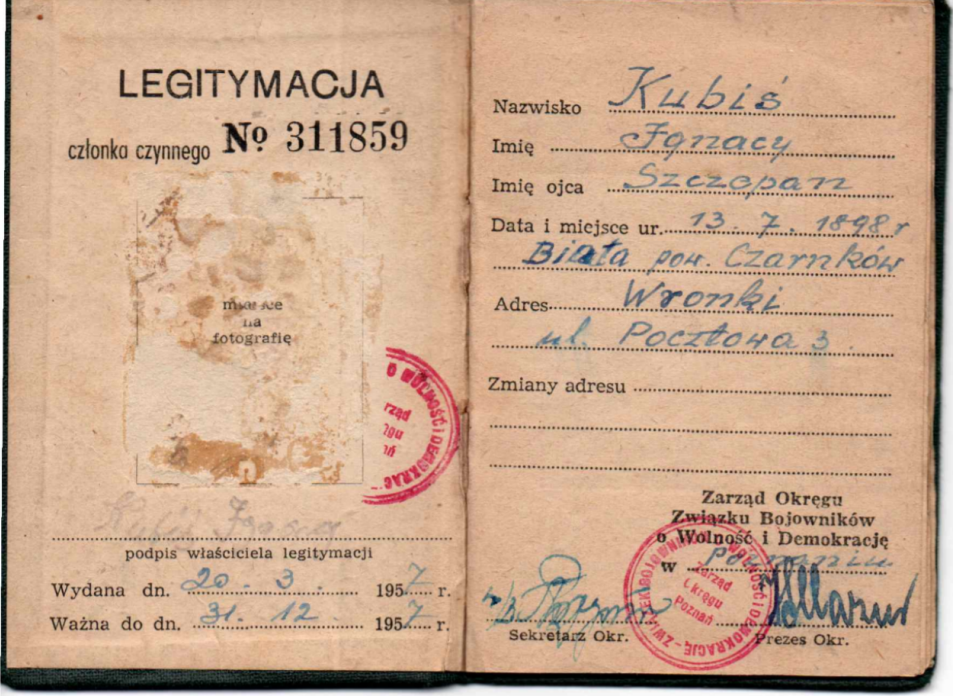 LEGITYMACJA
członka czynnego Nº 311859
na
fotografię
O WOLNOŚĆ I DEMOKRAC
Kubiś Ignacy
podpis właściciela legitymacji
Wydana dn. 20 . 3 . 1957 r.
Ważna do dn. 31. 12 . 1957 r.
Nazwisko Kubiś
Imię Ignacy
Imię ojca Szczepan
Data i miejsce ur. 13. 7. 1898 r
Biała pow. Czarnków
Adres Wronki
ul. Pocztowa 3.
Zmiany adresu
Zarząd Okręgu
Związku Bojowników
o Wolność i Demokrację
w Poznaniu
Zarząd
Okręgu
Poznań
Sekretarz Okr.
Prezes Okr.